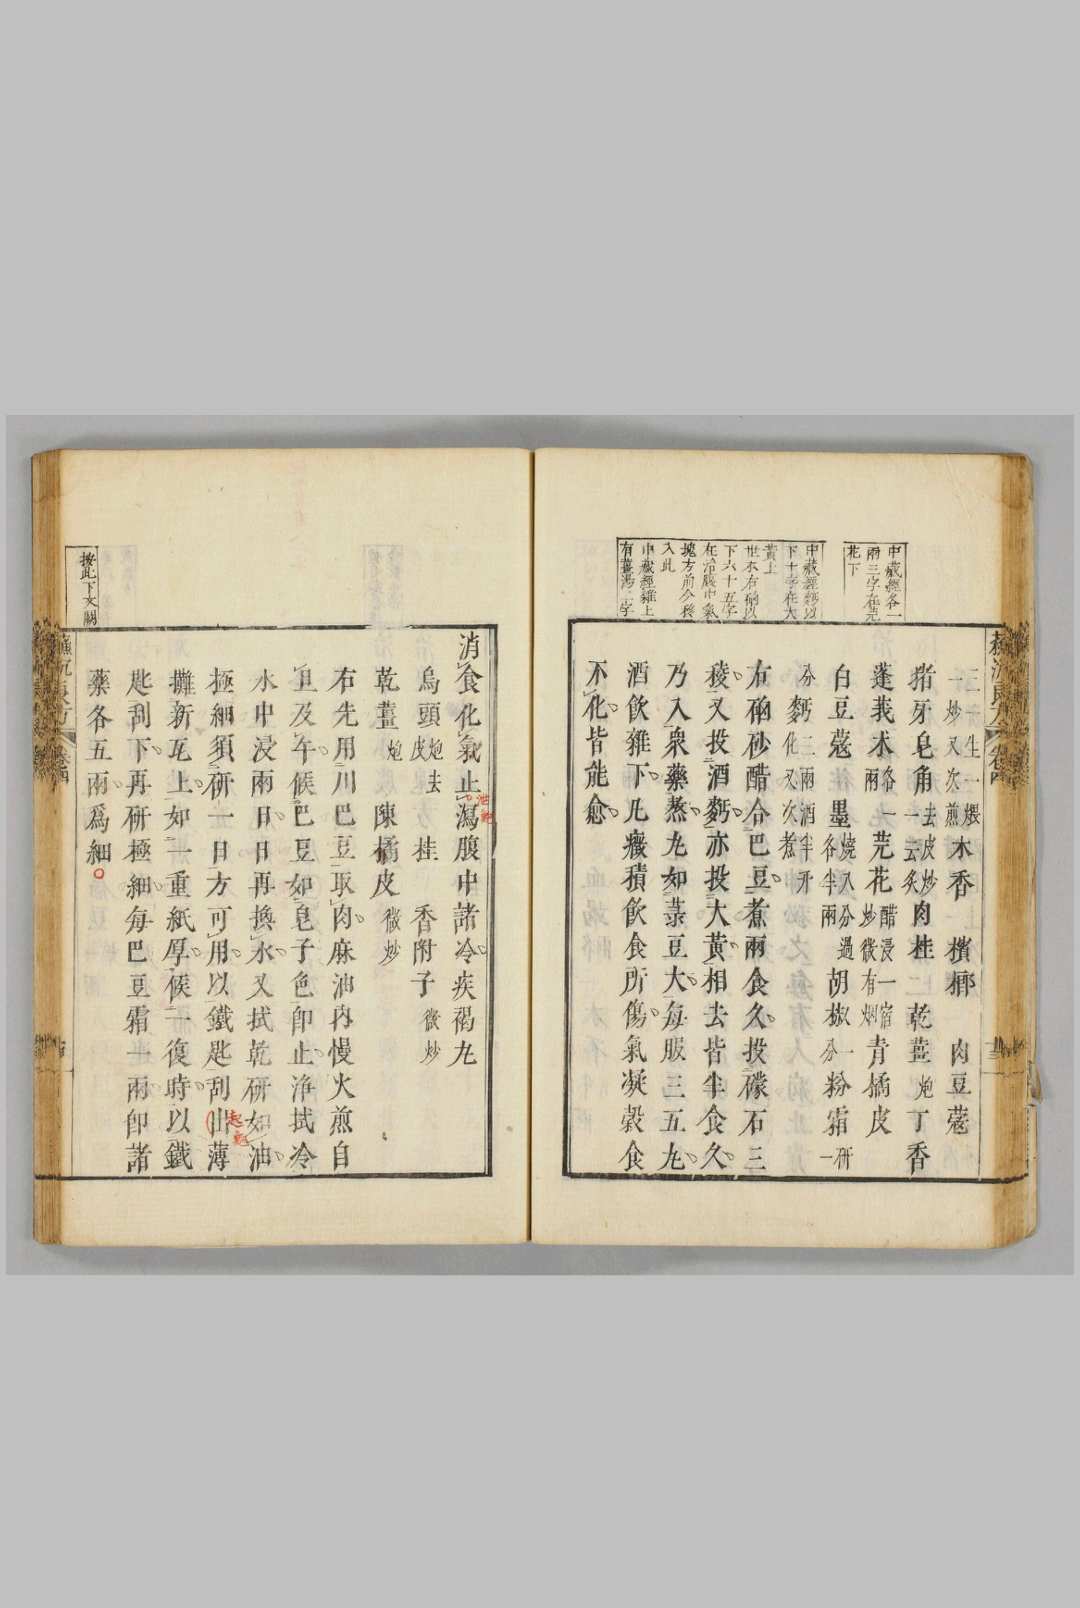 中藏經各一
兩三字在芫
花下
中藏經麪以
下十字在大
黃上
世本右硇以
下六十五字
在治腹中氣
塊方前今移
入此
中藏經雜上
有薑湯二字
一炒又次煎 木香 檳榔 肉豆蔻
猪牙皂角去皮炒一云炙肉桂二乾薑炮丁香
蓬莪朮各一兩芫花醋浸一宿炒微有烟青橘皮
白豆蔻 墨燒八分過各半兩胡椒一分粉霜研一
分麪二兩酒半升化又次煮
右硇砂醋合巴豆煮兩食久投礞石三
稜又投酒麪亦投大黃相去皆半食久
乃入衆藥熬丸如菉豆大每服三五丸
酒飲雜下凡癥積飲食所傷氣凝穀食
不化皆能愈
按此下文闕
消食化氣止瀉腹中諸冷疾褐丸
烏頭炮去皮 桂 香附子微炒
乾薑炮 陳橘皮微炒
右先用川巴豆取肉麻油內慢火煎自
旦及午候巴豆如皂子色卽止淨拭冷
水中浸兩日日再換水又拭乾硏如油
極細須硏一日方可用以鐵匙刮出薄
攤新瓦上如一重紙厚候一復時以鐵
匙刮下再硏極細每巴豆霜一兩卽諸
藥各五兩爲細